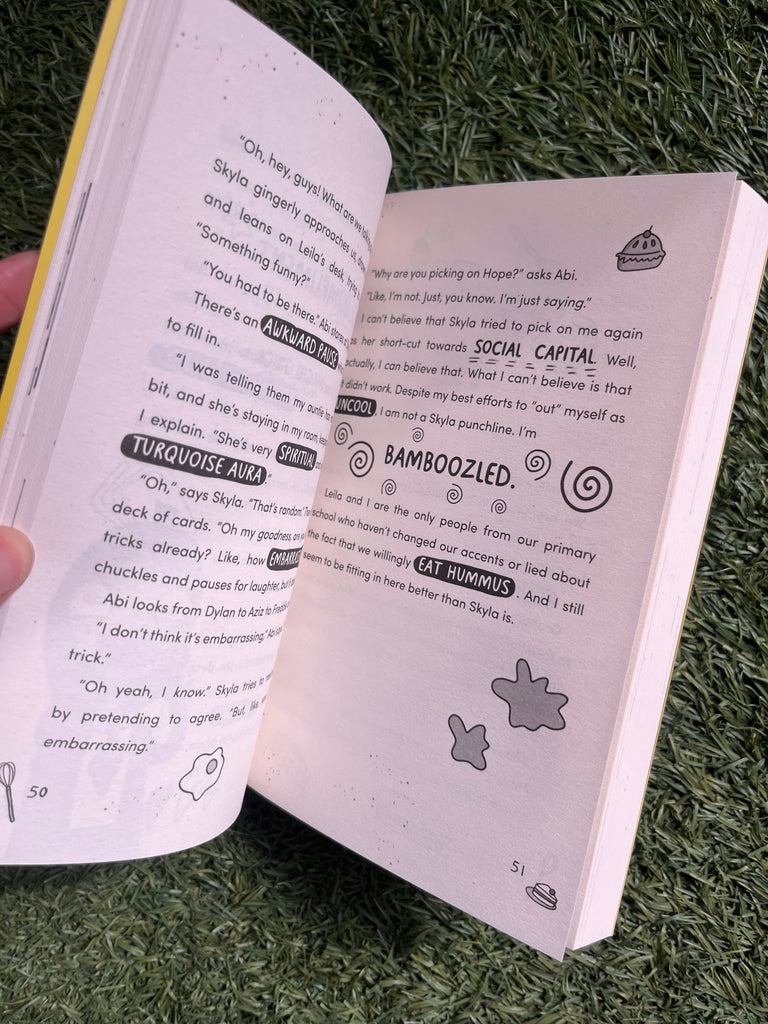 “Oh, hey, guys! What are we
Skyla gingerly approaches us,
and leans on Leila’s desk, trying
“Something funny?”
“You had to be there.” Abi stares
There’s an AWKWARD PAUSE
to fill in.
“I was telling them my auntie has
bit, and she’s staying in my room,
I explain. “She’s very SPIRITUAL
TURQUOISE AURA.”
“Oh,” says Skyla. “That’s random.”
deck of cards. “Oh my goodness, are
tricks already? Like, how
chuckles and pauses for laughter, but
Abi looks from Dylan to Aziz to
“I don’t think it’s embarrassing,” Abi
trick.”
“Oh yeah, I know.” Skyla tries to
by pretending to agree. “But, like,
embarrassing.”
50
“Why are you picking on Hope?” asks Abi.
“Like, I’m not. Just, you know, I’m just saying.”
I can’t believe that Skyla tried to pick on me again
as her short-cut towards SOCIAL CAPITAL. Well,
actually, I can believe that. What I can’t believe is that
it didn’t work. Despite my best efforts to “out” myself as
UNCOOL I am not a Skyla punchline. I’m
BAMBOOZLED.
Leila and I are the only people from our primary
school who haven’t changed our accents or lied about
the fact that we willingly EAT HUMMUS. And I still
seem to be fitting in here better than Skyla is.
51